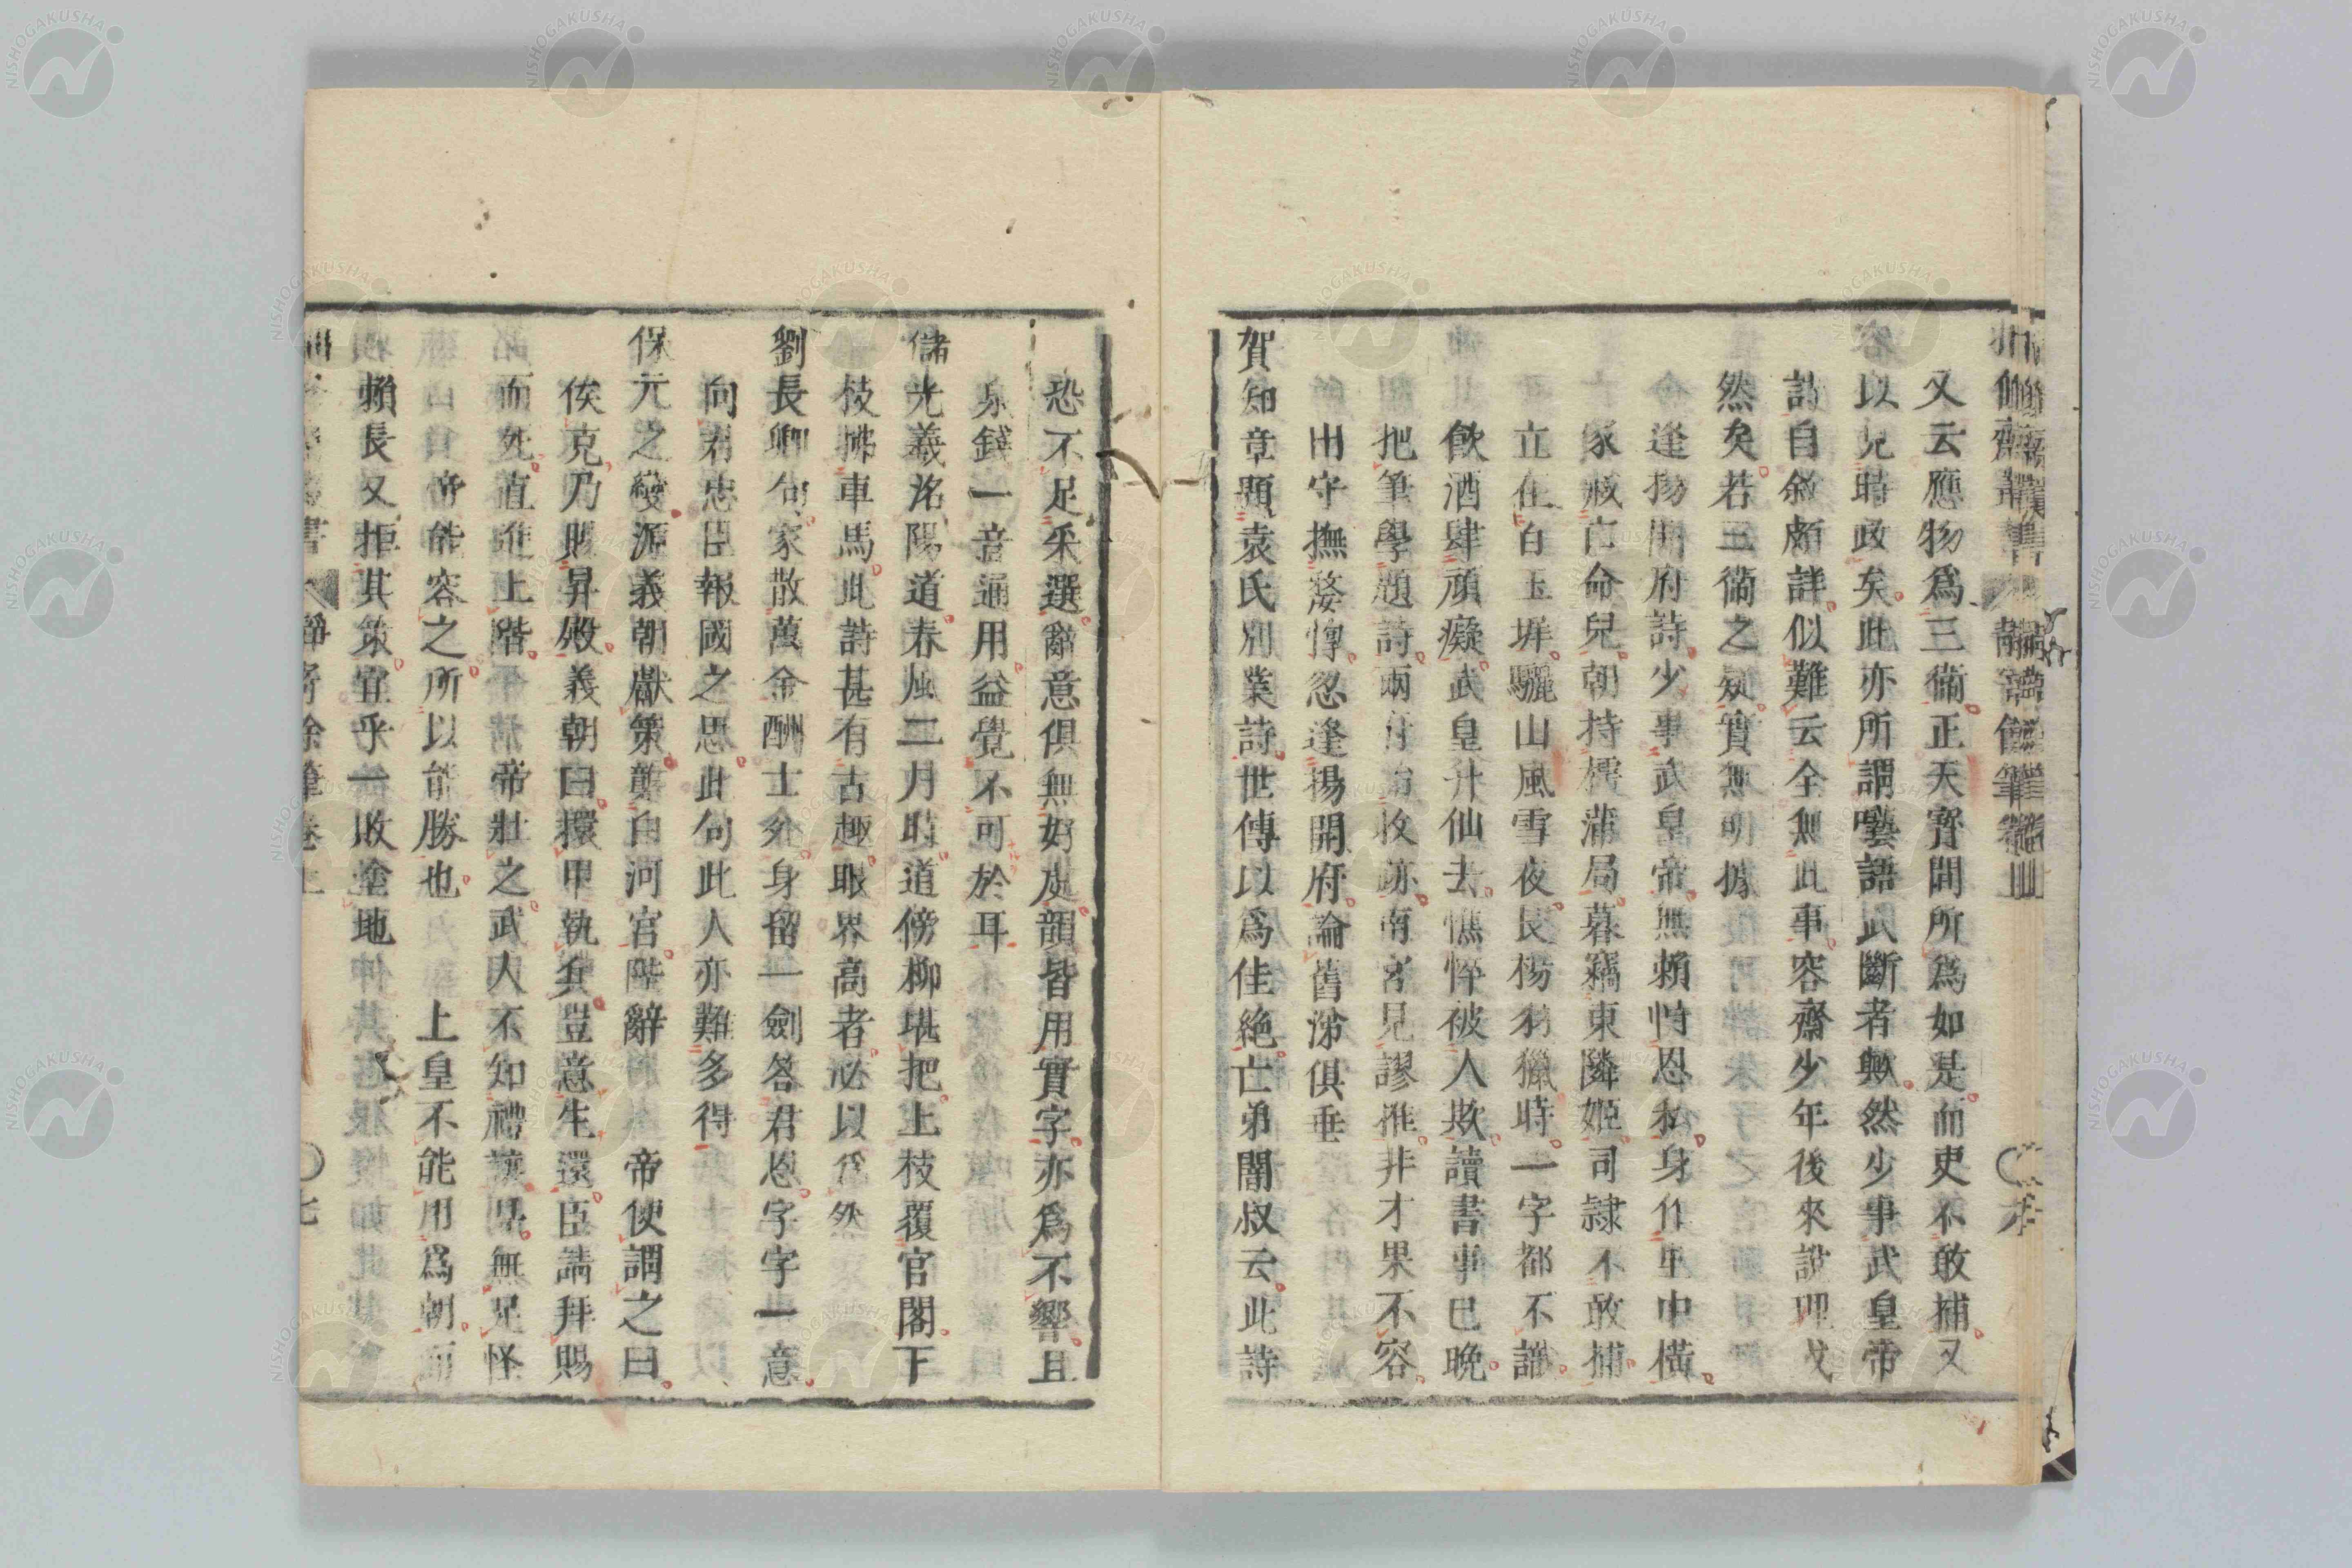 又云應物爲三衛正天寶間所爲如是而吏不敢捕又
以見時政矣此亦所謂囈語武斷者歟然少事武皇帝
詩自敘頗詳似難云全無此事容齋少年後來說理或
然矣若三衛之疑實無明據
逢揚開府詩少事武皇帝無賴恃恩私身作里中橫
家藏亡命兒朝持樗蒲局暮竊東隣姬司隷不敢捕
立在白玉墀驪山風雪夜長楊羽獵時一字都不識
飮酒肆頑癡武皇升仙去憔悴被人欺讀書事已晚
把筆學題詩兩府始收跡南宮見謬推非才果不容
出守撫惸忽逢揚開府論舊涕俱垂
賀知章題袁氏別業詩世傳以爲佳絶亡弟闇叔云此詩
恐不足采選辭意俱無好處韻皆用實字亦爲不響且
泉錢一音通用益覺不可於耳
儲光羲洛陽道春風二月時道傍柳堪把上枝覆官閣下
枝拂車馬此詩甚有古趣眼界高者必以爲然
劉長卿句家散萬金酬士死身留一劍答君恩字字一意
向君忠臣報國之思此句此人亦難多得
保元之變源義朝獻策襲白河官陛辭 帝使謂之曰
俟克乃賜昇殿義朝曰擐甲執兵豈意生還臣請拜賜
而死直進上階 帝壯之武人不知禮讓是無足怪
帝能容之所以能勝也 上皇不能用爲朝而
賴長又拒其策宜乎一敗塗地
靜寄餘筆卷上 ○七